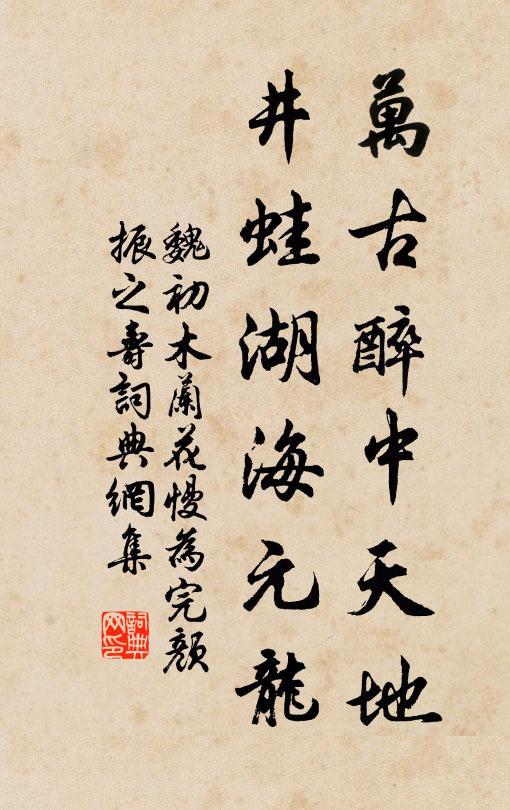 萬古醉中天地
井蛙湖海元龍
魏初木蘭花慢為完顏
振之壽詞典網集
詞典網印